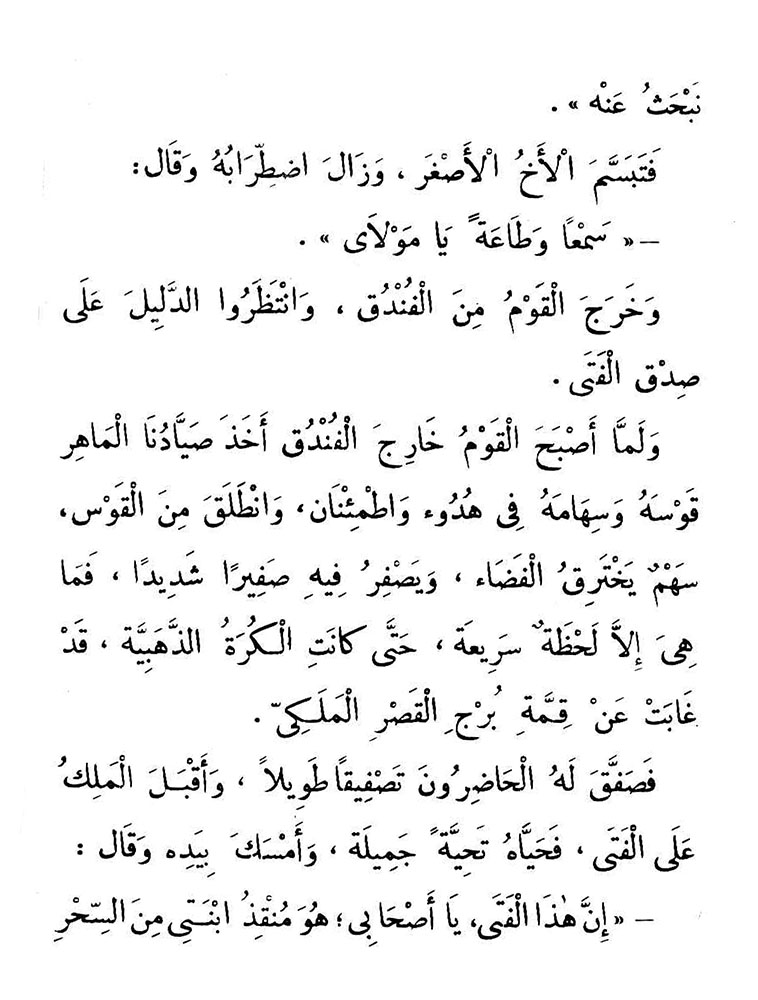 نَبْحَثُ عَنْه » .
فَتَبَسَّمَ الْأَخُ الْأَصْغَر ، وَزَالَ اضطِّرَابُهُ وَقَال :
– « سَمْعًا وَطَاعَةً يَا مَوْلَاى » .
وَخَرَجَ الْقَوْمُ مِنَ الْفُنْدُق ، وَانْتَظَرُوا الدَّلِيلَ عَلَى
صِدْق الْفَتَى .
وَلَمَّا أَصْبَحَ الْقَوْمُ خَارِجَ الْفُنْدُق أَخَذَ صَيَّادُنَا الْمَاهِر
قَوْسَهُ وَسِهَامَهُ فِى هُدُوء وَاطْمِئْنَان، وَانْطَلَقَ مِنَ الْقَوْس،
سَهْمٌ يَخْتَرِقُ الْفَضَاء ، وَيَصْفِرُ فِيهِ صَفِيرًا شَدِيدًا ، فَمَا
هِىَ إِلاَّ لَحْظَةٌ سَرِيعَة ، حَتَّى كانَتِ الْكُرَةُ الذَّهَبِيَّة ، قَدْ
غَابَتْ عَنْ قِمَّةِ بُرْجِ الْقَصْرِ الْمَلَكِىّ .
فَصَفَّقَ لَهُ الْحَاضِرُونَ تَصْفِيقًا طَوِيلاً ، وَأَقْبَلَ الْمَلِكُ
عَلَى الْفَتَى ، فَحَيَّاهُ تَحِيَّةً جَمِيلَة ، وَأَمْسَكَ بِيَدِه وَقَال :
– « إِنَّ هٰذَا الْفَتَى، يَا أَصْحَابِى ؛ هُوَ مُنْقِذُ ابْنَتِى مِنَ السِّحْرِ